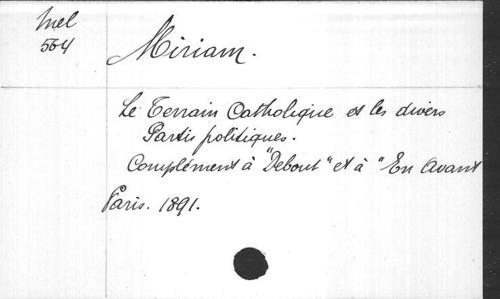 Mel
564
Miriam.
Le Terrain Catholique et les divers
Partis politiques.
Complément à "Debout" et à "En Avant
Paris. 1891.